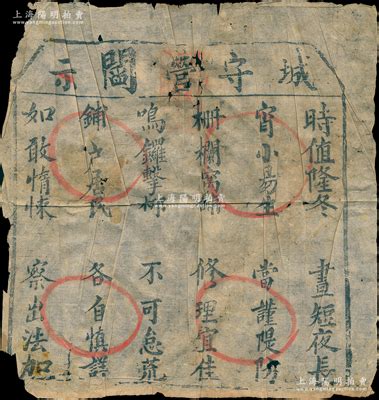 上海陽明拍賣
城守營閻示
時值隆冬 晝短夜長
宵小易生 當謹隄防
柵欄窩鋪 修理宜佳
鳴鑼擊柝 不可怠荒
鋪户居民 各自慎謹
如敢惰 察出法加